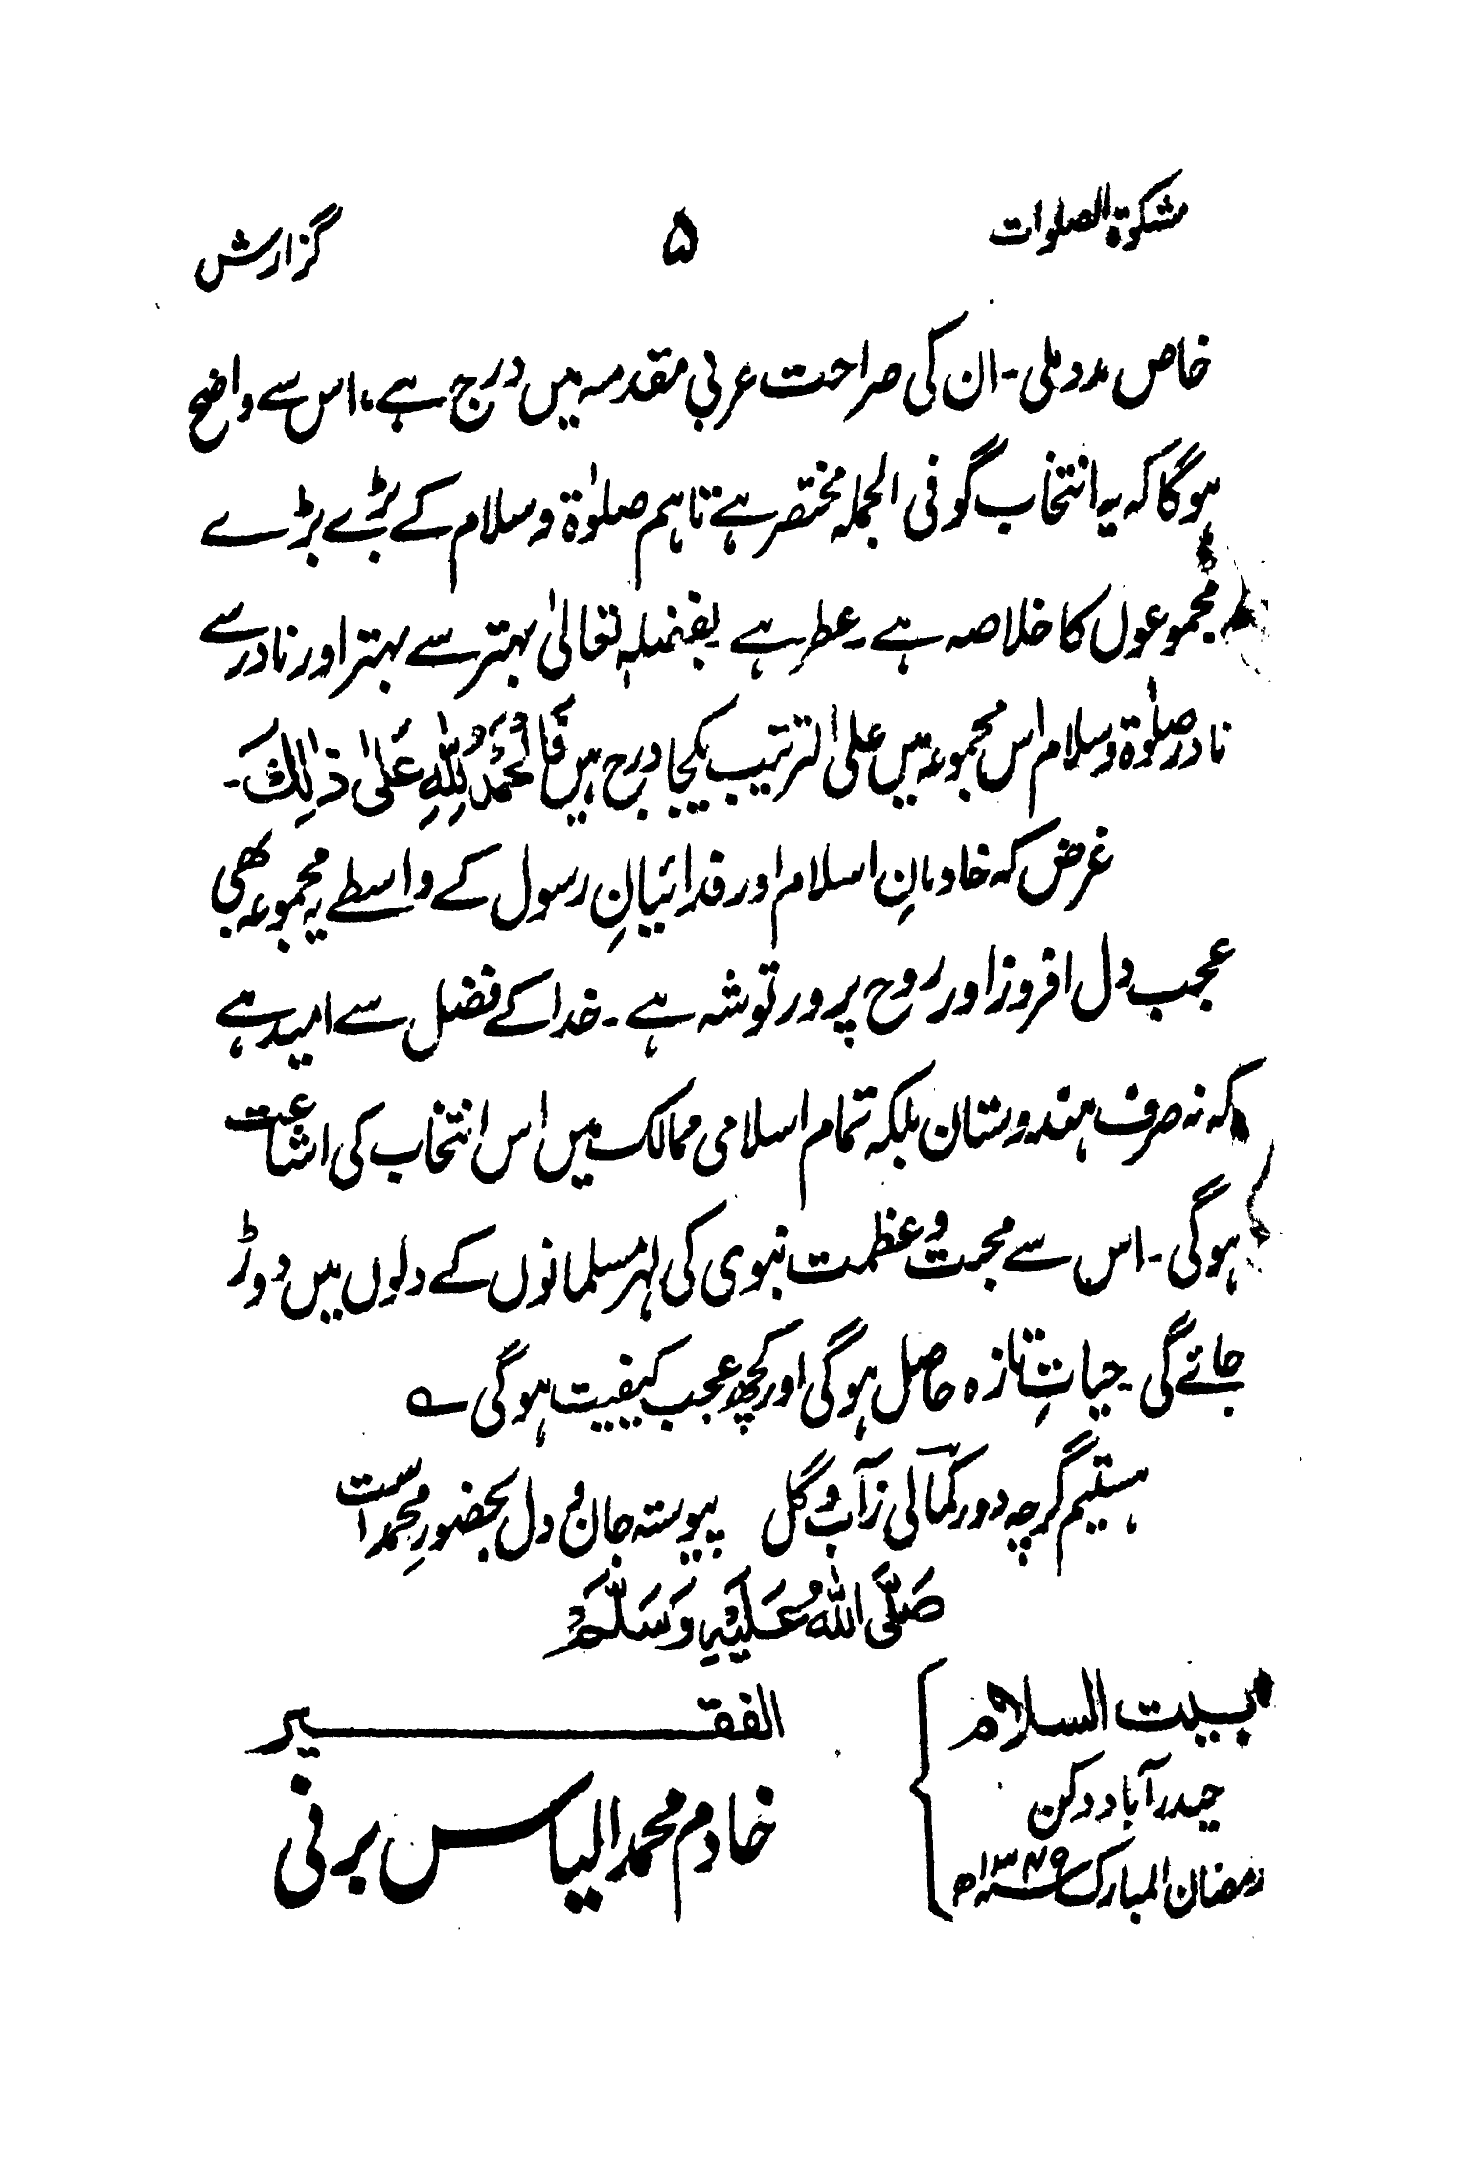 مشکوۃ الصلوات ۵ گزارش
خاص مدد ملی ۔ ان کی صراحت عربی مقدمہ میں درج ہے، اس سے واضح
ہوگا کہ یہ انتخاب گو فی الجملہ مختصر ہے تاہم صلوٰۃ و سلام کے بڑے بڑے
مجموعوں کا خلاصہ ہے ۔ عطر ہے ۔ بفضلہٖ تعالیٰ بہتر سے بہتر اور نادر سے
نادر صلوٰۃ و سلام اس مجموعہ میں علی الترتیب یکجا درج ہیں فَالْحَمْدُ لِلّٰہِ عَلیٰ ذٰلِكَ ۔
غرض کہ خادمانِ اسلام اور فدائیانِ رسول کے واسطے یہ مجموعہ بھی
عجب دل افروز اور روح پرور توشہ ہے ۔ خدا کے فضل سے امید ہے
کہ نہ صرف ہندوستان بلکہ تمام اسلامی ممالک میں اس انتخاب کی اشاعت
ہوگی ۔ اس سے محبت و عظمت نبوی کی لہر مسلمانوں کے دلوں میں دوڑ
جائے گی ۔ حیاتِ تازہ حاصل ہوگی اور کچھ عجب کیفیت ہوگی ؎
ہستیم گرچہ دور کمالی ز آب و گل پیوستہ جان و دل بحضورِ محمد است
صَلَّی اللّٰہُ عَلَیْہِ وَسَلَّمْ
بیت السلام الفقیر
حیدرآباد دکن خادم محمد الیاس برنی
رمضان المبارک ۱۳۴۹ھ